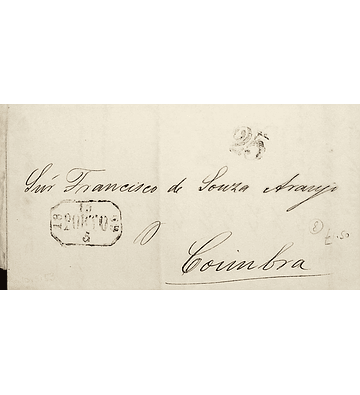 25
Snr Francisco de Souza Araujo
18 15 PORTO 5
Coimbra